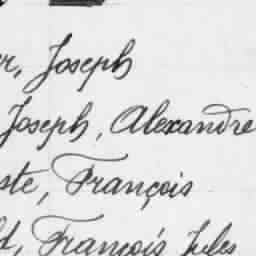 r, Joseph
Joseph, Alexandre
ste, François
d, François Jules